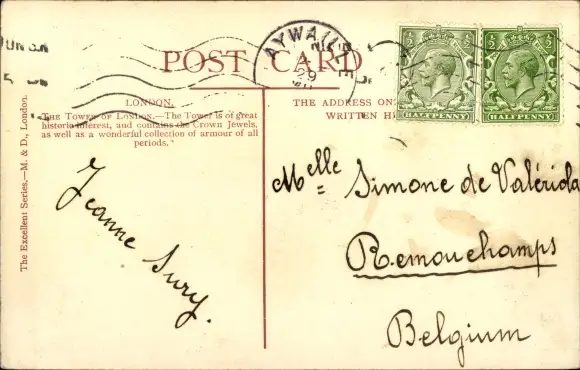 POST CARD
AYWAILLE
29
½ ½
HALFPENNY
½ ½
HALFPENNY
LONDON.
THE TOWER OF LONDON.—The Tower is of great
historic interest, and contains the Crown Jewels,
as well as a wonderful collection of armour of all
periods.
THE ADDRESS
WRITTEN
The Excellent Series.—M. & D., London.
Jeanne Sury.
Melle Simone de Valériola
Remouchamps
Belgium